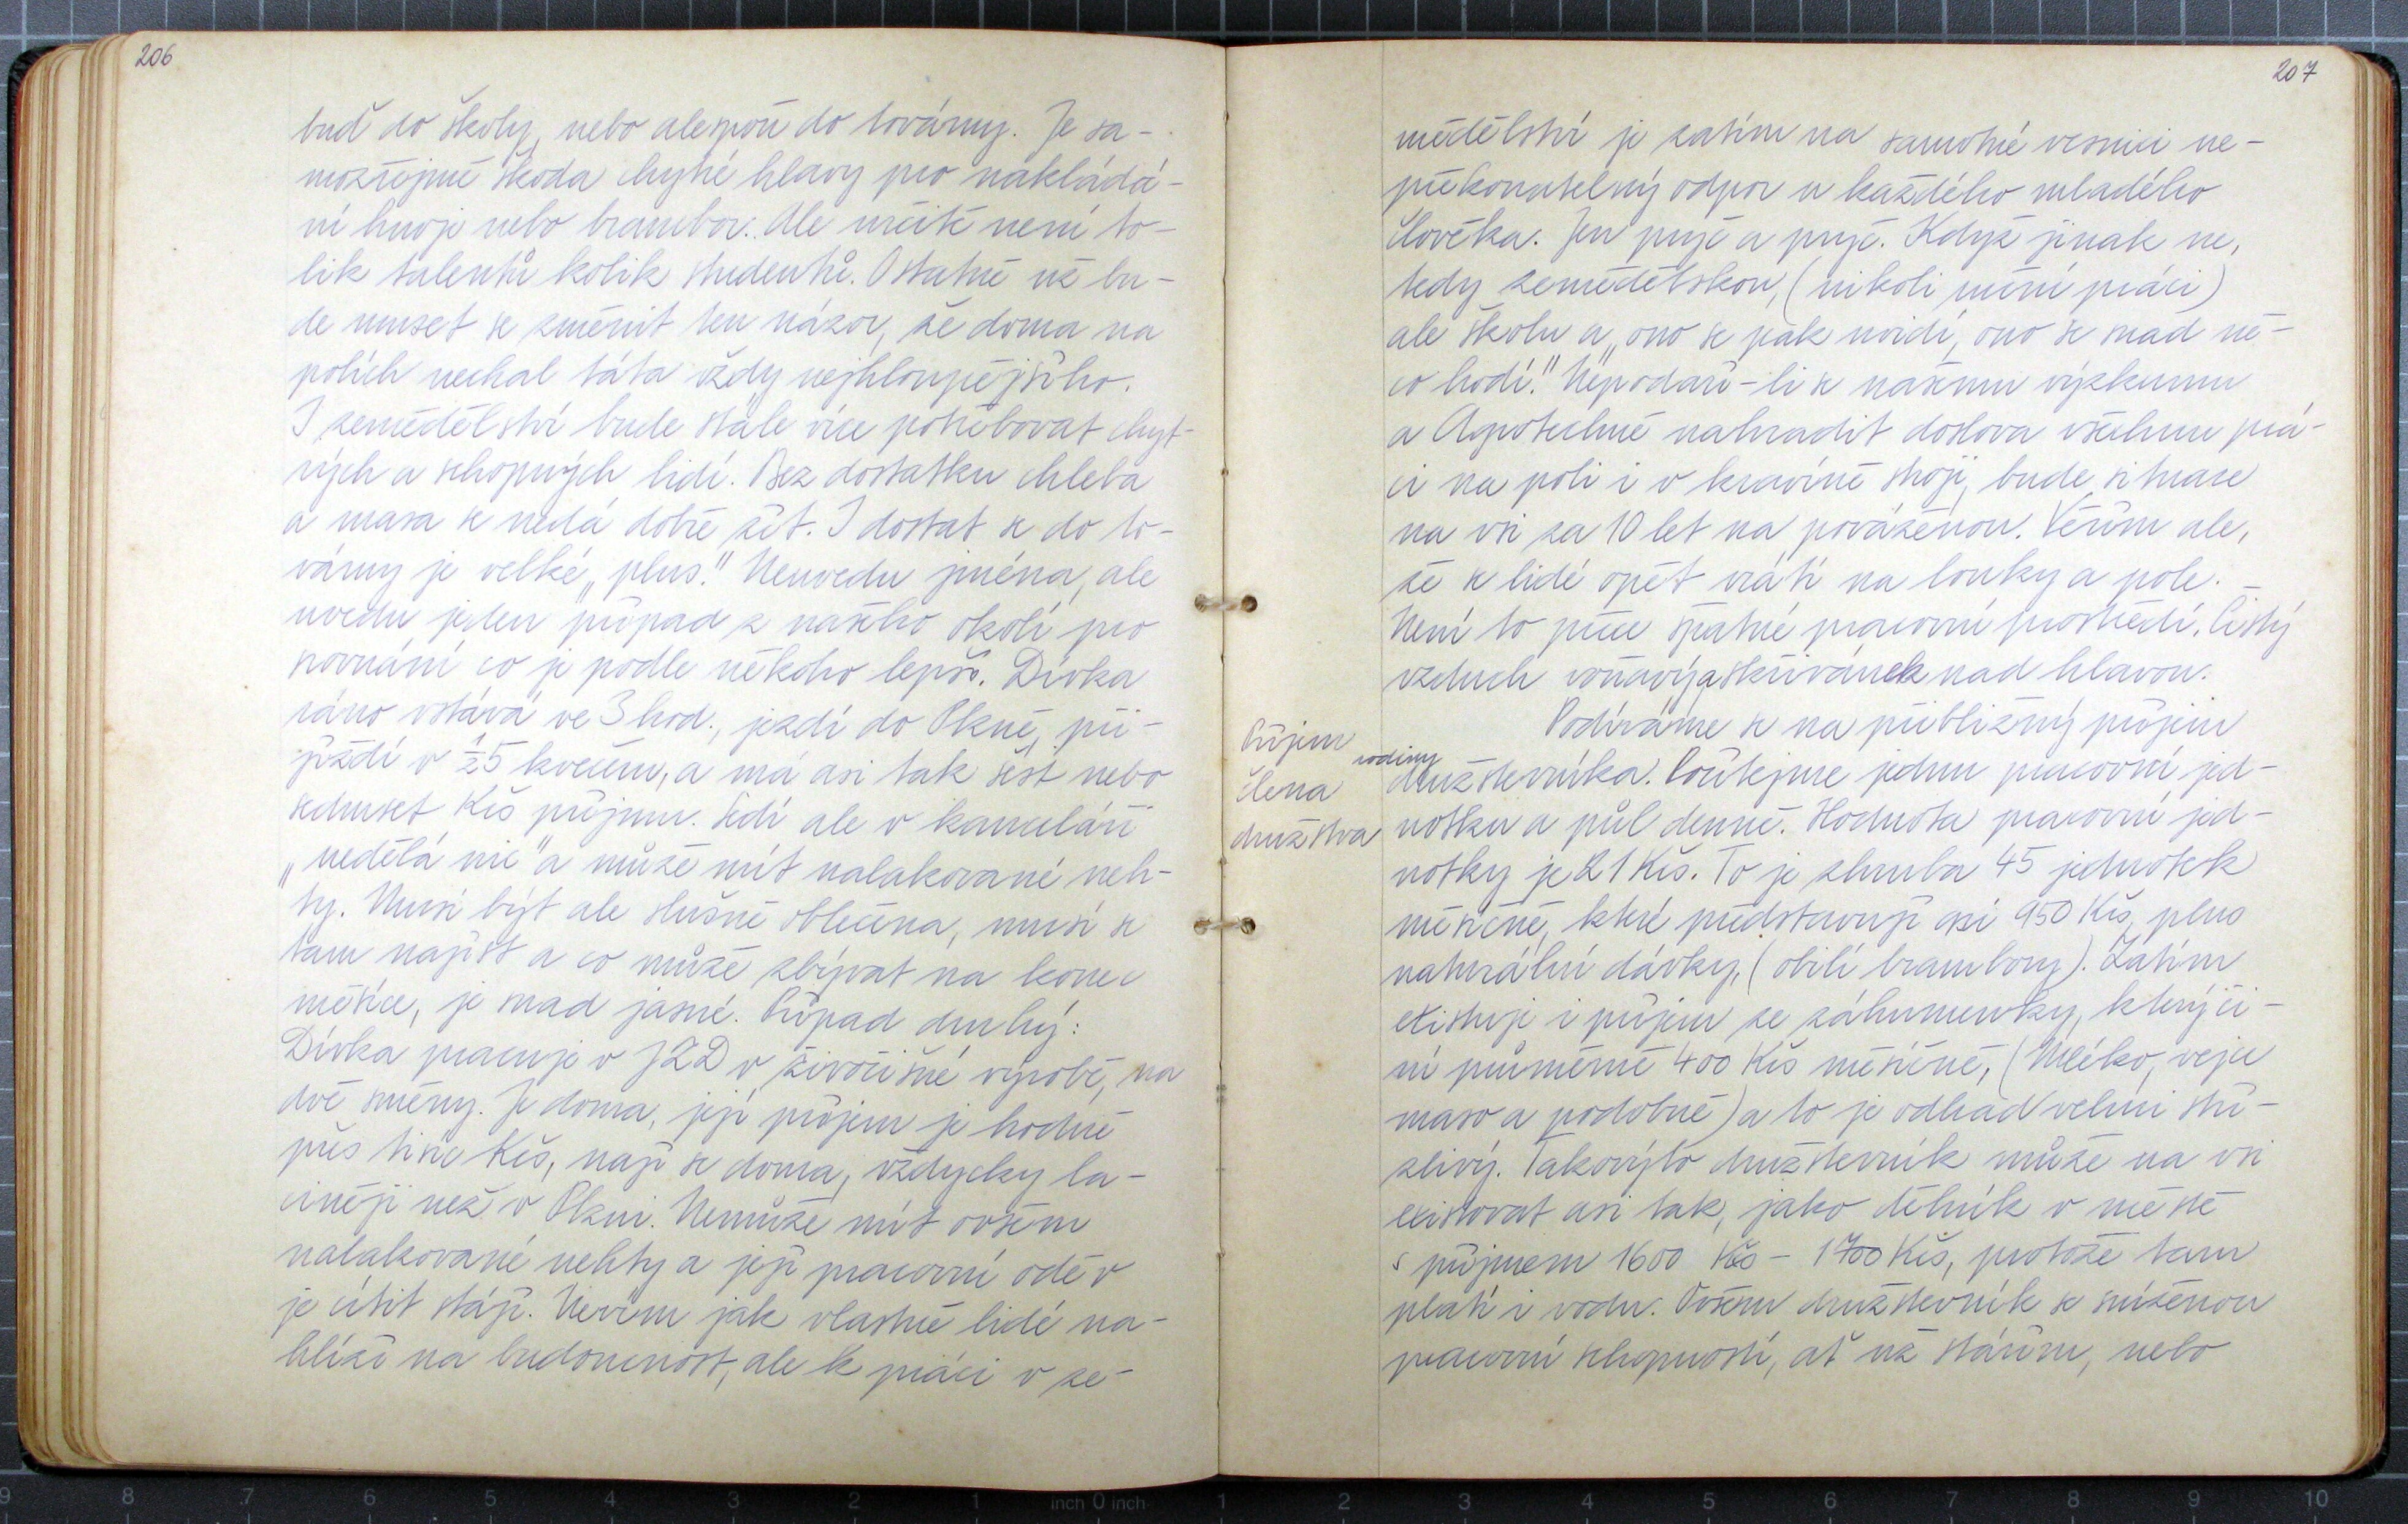 206
buď do školy, nebo alespoň do továrny. Je sa-
mozřejmě škoda chytré hlavy pro nakládá-
ní hnoje nebo brambor. Ale určitě není to-
lik talentů kolik studentů. Ostatně už bu-
de muset se změnit ten názor, že doma na
polích nechal táta vždy nejhloupějšího.
I zemědělství bude stále více potřebovat chyt-
rých a schopných lidí. Bez dostatku chleba
a masa se nedá dobře žít. I dostat se do to-
várny je velké „plus." Neuvedu jména, ale
uvedu jeden případ z našeho okolí pro
srovnání co je podle někoho lepší. Dívka
ráno vstává ve 3 hod., jezdí do Plzně, při-
jíždí v ½5 kvečeru, a má asi tak šest nebo
sedmset Kčs příjmu. Sedí ale v kanceláři
„nedělá nic" a může mít nalakované neh-
ty. Musí být ale slušně oblečena, musí se
tam najíst a co může zbývat na konec
měsíce, je snad jasné. Případ druhý:
Dívka pracuje v JZD v živočišné výrobě, na
dvě směny. Je doma, její příjem je hodně
přes tisíc Kčs, nají se doma, vždycky la-
ciněji než v Plzni. Nemůže mít ovšem
nalakované nehty a její pracovní oděv
je cítit stájí. Nevím jak vlastně lidé na-
hlíží na budoucnost, ale k práci v ze-
207
mědělství je zatím na samotné vesnici ne-
překonatelný odpor u každého mladého
člověka. Jen pryč a pryč. Když jinak ne,
tedy zemědělskou, (nikoli měni práci)
ale školu a „ono se pak uvidí, ono se snad ně-
co hodí." Nepodaří-li se našemu výzkumu
a Agrotechně nahradit doslova všechnu prá-
ci na poli i v kravíně stroji, bude situace
na vsi za 10 let na pováženou. Věřím ale,
že se lidé opět vrátí na louky a pole.
Není to přece špatné pracovní prostředí. Čistý
vzduch voňavý a skřivánek nad hlavou.
Podíváme se na přibližný příjem
Příjem
člena
družstva
rodiny
družstevníka. Počítejme jednu pracovní jed-
notku a půl denně. Hodnota pracovní jed-
notky je 21 Kčs. To je zhruba 45 jednotek
měsíčně, které představují asi 950 Kčs, plus
naturální dávky, (obilí brambory). Zatím
existuje i příjem ze záhumenky, který či-
ní průměrně 400 Kčs měsíčně, (Mléko, vejce
maso a podobně) a to je odhad velmi stří-
zlivý. Takovýto družstevník může na vsi
existovat asi tak, jako dělník v městě
s příjmem 1600 Kčs - 1700 Kčs, protože tam
platí i vodu. Ovšem družstevník se sníženou
pracovní schopností, ať už stářím, nebo